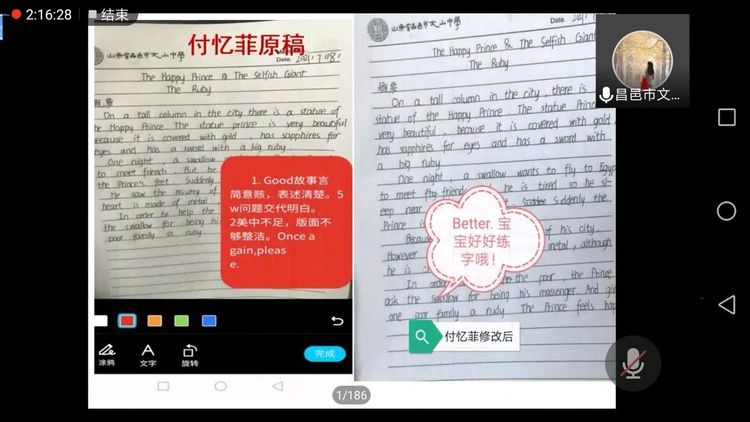 2:16:28
结束
付忆菲原稿
山东省昌邑市文山中学
Date. 2021 7 18
The Happy Prince & The Selfish Giant
The Ruby
摘要
On a tall column in the city there is a statue of
the Happy Prince The statue prince is very beautiful
because it is covered with gold, has sapphires for
eyes and has a sword with a big ruby
One night, a swallow
to meet friends. But he
the Prince's feet Suddenly
He saw the misery of
heart is made of metal
In order to help the
the swallow for being his
poor family a ruby.
1. Good故事言
简意赅，表述清楚。5
w问题交代明白。
2美中不足，版面不
够整洁。Once a
gain,pleas
e.
涂鸦
文字
旋转
完成
山东省昌邑市文山中学
Date.
The Happy Prince & The Selfish Giant
The Ruby
摘要
On a tall column in the city, there is
statue of the Happy Prince. The statue Prince
very beautiful, because it is covered with gold
has sapphires for eyes and has a sword with
a big ruby
One night, a swallow wants to fly to Egypt
to meet the friends. he is tired so he sl-
eep near Suddenly the
Prince is
Because of his city.
However metal, although
he is
In order the poor, the Prince
ask the swallow for being his massenger. And give
one poor family a rudy. The Prince feels happy
Better. 宝
宝好好练
字哦！
付忆菲修改后
1/186
昌邑市文...